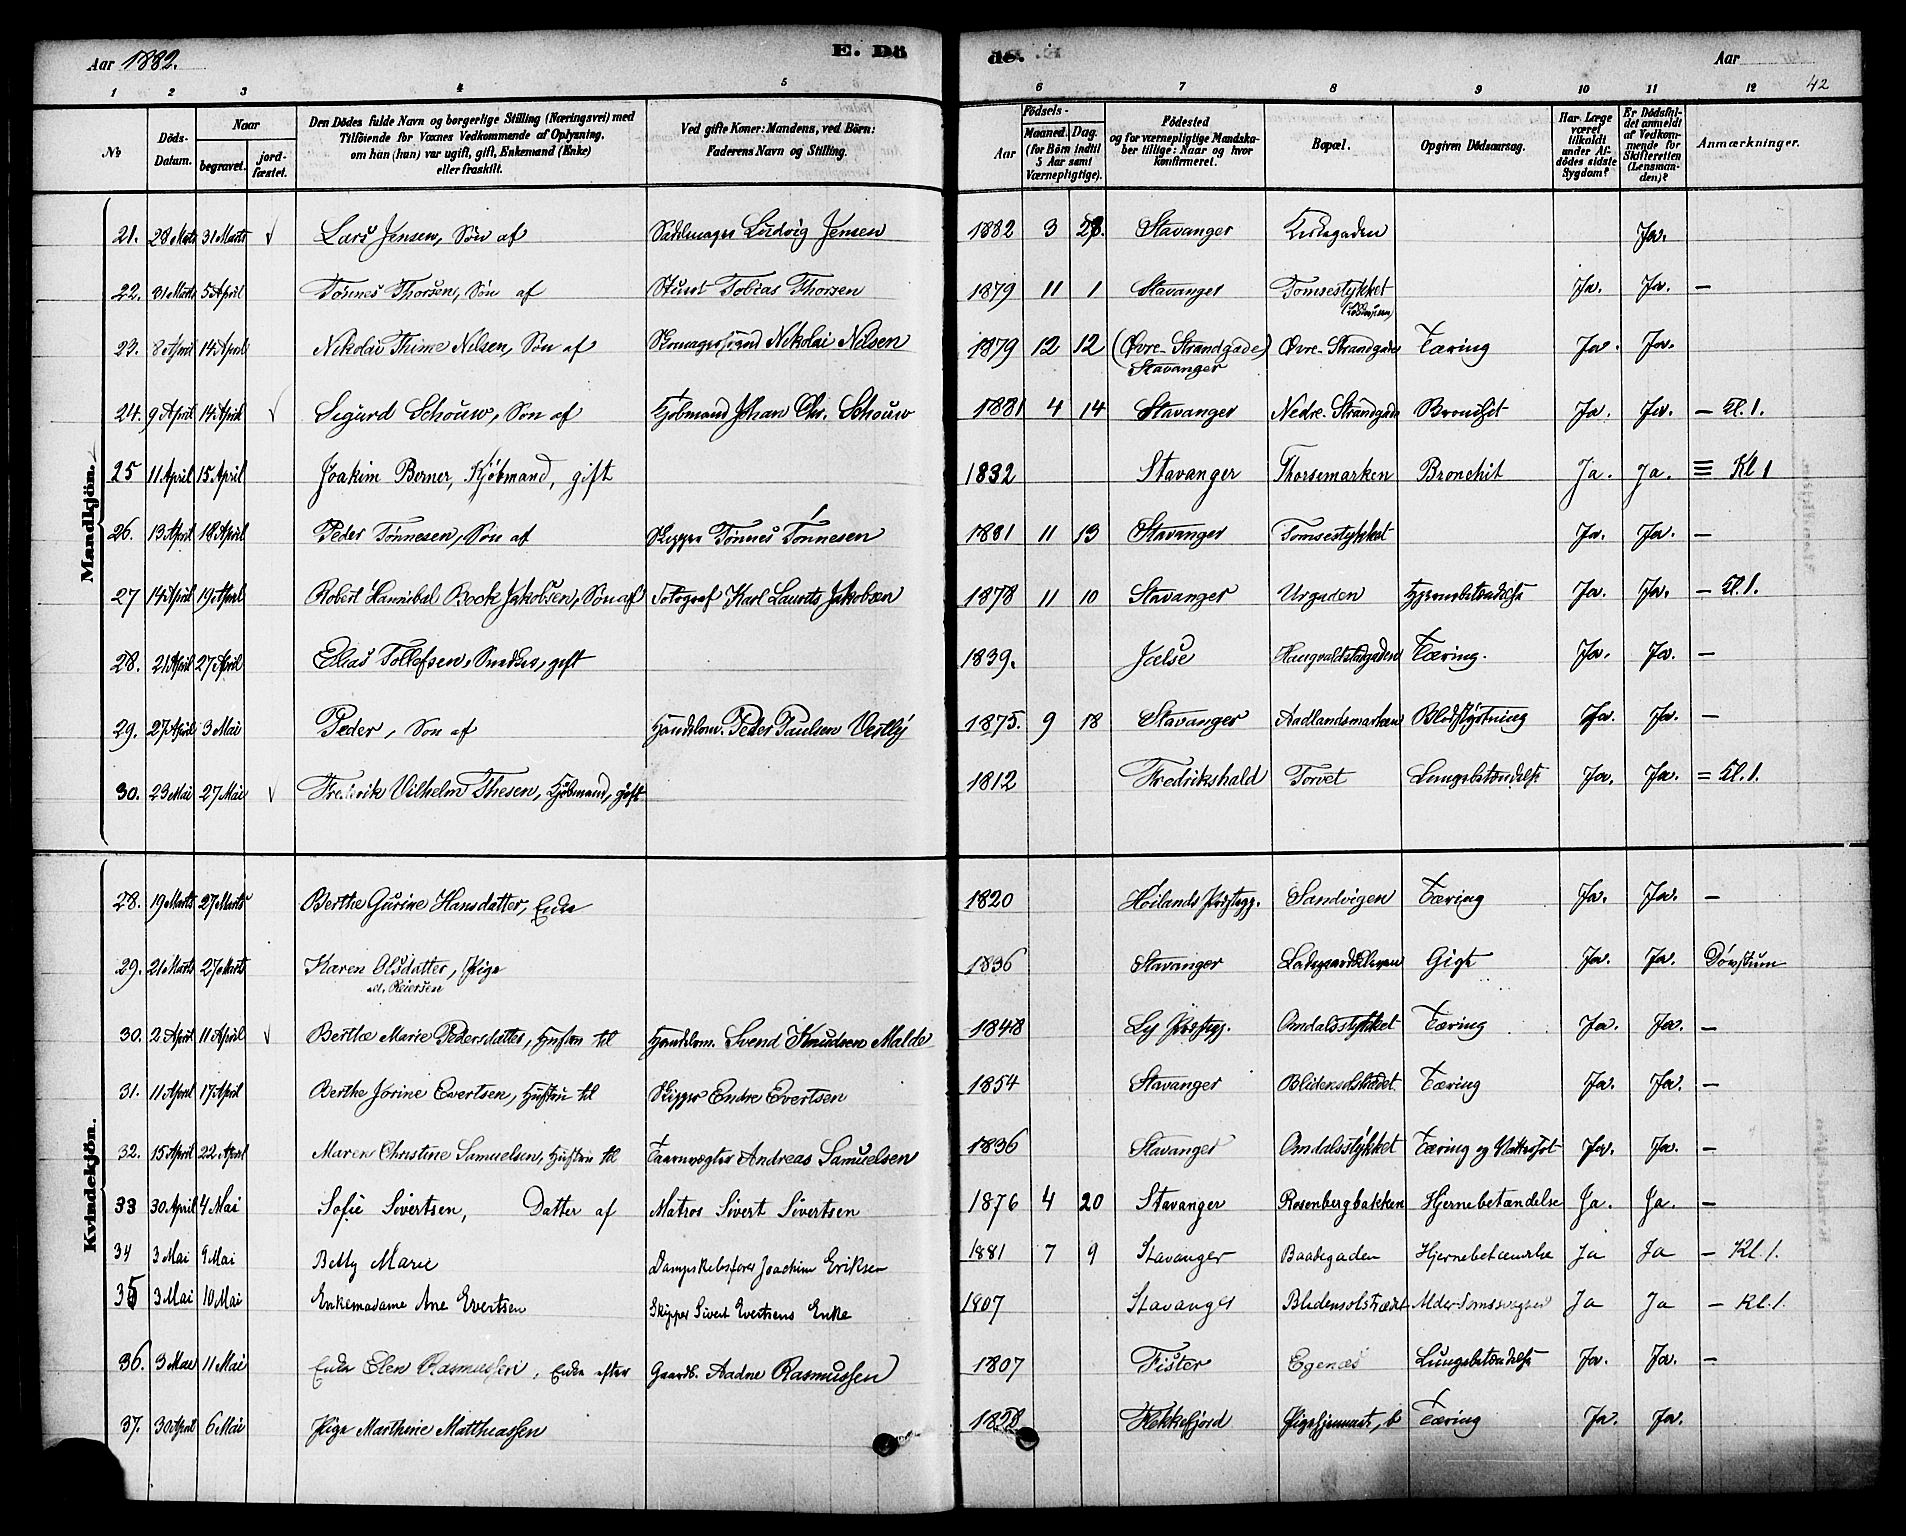 Aar 1882.
E. Dö
de.
Aar
42
1 2 3 4 5 6 7 8 9 10 11 12
No
Döds-Datum.
Naar
begravet.
jord-fæstet.
Den Dödes fulde Navn og borgerlige Stilling (Næringsvei) med Tilföiende for Voxnes Vedkommende af Oplysning, om hun (han) var ugift, gift, Enkemand (Enke) eller fraskilt.
Ved gifte Koner: Mandens, ved Börn: Faderens Navn og Stilling.
Födsels-
Aar
Maaned. Dag.
(for Börn indtil 5 Aar samt Værnepligtige).
Födested og for værnepligtige Mandskaber tillige: Naar og hvor konfirmeret.
Bopæl.
Opgiven Dödsaarsag.
Har Læge været tilkaldt under Afdödes sidste Sygdom?
Er Dödsfaldet anmeldt af Vedkommende for Skifteretten (Lensmanden)?
Anmærkninger.
Mandkjön.
21. 28 Marts 31 Marts √ Lars Jensen, Søn af Sadelmager Ludvig Jensen 1882 3 28. Stavanger Ja.
22. 31 Marts 5 April Tønnes Thorsen, Søn af Tobias Thorsen 1879 11 1 Stavanger Tomsestykket Ja. Ja. —
23. 8 April 14 April Nikolai Thime Nilsen, Søn af Nikolai Nilsen 1879 12 12 (Øvre Strandgade) Stavanger Øvre Strandgade Tæring Ja. Ja.
24. 9 April 14 April √ Sigurd Schouw, Søn af Kjøbmand Johan Chr. Schouw 1881 4 14 Stavanger Nedre Strandgade Bronchit Ja. Ja. — Kl. 1.
25 11 April 15 April Joakim Berner, Kjøbmand, gift 1832 Stavanger Thorsemarken Bronchit Ja. Ja. Kl 1
26. 13 April 18 April Peder Tønnesen, Søn af Skipper Tønnes Tønnesen 1881 11 13 Stavanger Tomsestykket Ja. Ja. —
27 14 April 19 April Robert Hannibal Bock Jakobsen, Søn af Fotograf Karl Laurits Jakobsen 1878 11 10 Stavanger Urgaden Hjernebetændelse Ja. Ja. — Kl. 1.
28. 21 April 27 April Elias Tollefsen, Snedker, gift 1839. Jælse Tæring. Ja. Ja. —
29. 27 April 3 Mai Peder, Søn af Handelsm. Peder Paulsen Vestly 1875. 9 18 Stavanger Aadlandsmarken Blodstyrtning Ja. Ja. —
30. 23 Mai 27 Mai √ Fredrik Vilhelm Thesen, Kjøbmand, gift 1812 Fredrikshald Torvet Lungebetændelse Ja. Ja. = Kl. 1.
Kvindekjön.
28. 19 Marts 27 Marts Berthe Gurine Hansdatter, Enke 1820 Høilands Præstegj. Sandvigen Tæring Ja. Ja. —
29. 21 Marts 27 Marts Karen Olsdatter, Pige
ad. Reiersen 1836 Stavanger Gigt Ja. Ja. Døvstum
30. 2 April 11 April √ Berthe Marie Pedersdatter, Hustru til Handelsm. Svend Knudsen Malde 1848 Ly Præstegj. Omdalsstykket Tæring Ja. Ja. —
31. 11 April 17 April Berthe Jorine Evertsen, Hustru til Skipper Endre Evertsen 1854 Stavanger Blidensolstrædet Tæring Ja. Ja. —
32. 15 April 22 April Maren Christine Samuelsen, Hustru til Taarnvægter Andreas Samuelsen 1836 Stavanger Omdalsstykket Tæring og Ja. Ja. —
33 30 April 4 Mai Sofie Sivertsen, Datter af Matros Sivert Sivertsen 1876 4 20 Stavanger Rosenbergbakken Hjernebetændelse Ja. Ja. —
34 3 Mai 9 Mai Betty Marie Dampskibsfører Joachim Eriksen 1881 7 9 Stavanger Baadegaden Hjernebetændelse Ja Ja — Kl. 1.
35 3 Mai 10 Mai Enkemadame Ane Evertsen Skipper Sivert Evertsens Enke 1807 Stavanger Blidensolstrædet Alderdomssvaghed Ja Ja — Kl. 1.
36. 3 Mai 11 Mai Enke Elen Rasmussen, Enke efter Gaardb. Aadne Rasmussen 1807 Fister Egenæs Lungebetændelse Ja. Ja. —
37. 30 April 6 Mai Pige Marthine Matthiassen 1828 Flekkefjord Tæring Ja. Ja.